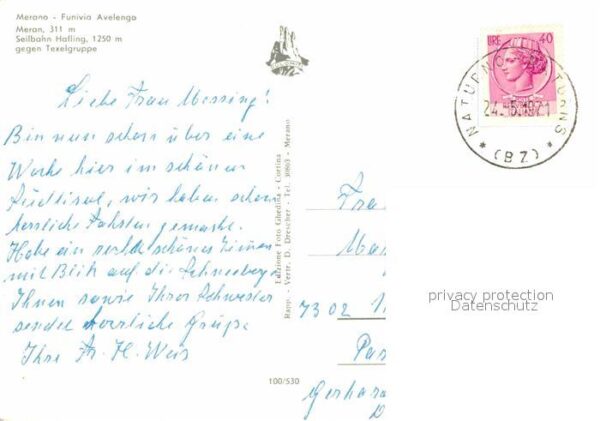 Merano - Funivia Avelengo
Meran, 311 m
Seilbahn Hafling, 1250 m
gegen Texelgruppe
Liebe Frau Messing!
Bin nun schon über eine
Woche hier im schönen
Südtirol, wir haben schon
herrliche Fahrten gemacht.
Habe ein recht schönes Zimmer
mit Blick auf die Schneeberge
Ihnen sowie Ihrer Schwester
sendet herrliche Grüße
Ihre Fr. H. Weis
Edizione Foto Ghedina - Cortina
Rapp. - Vertr. D. Drescher - Tel. 30893 - Merano
100/530
LIRE 40
NATURNO NATURNS
24.5.1971
(BZ)
Frau
Mes
7302
Par
Gerhard
privacy protection
Datenschutz